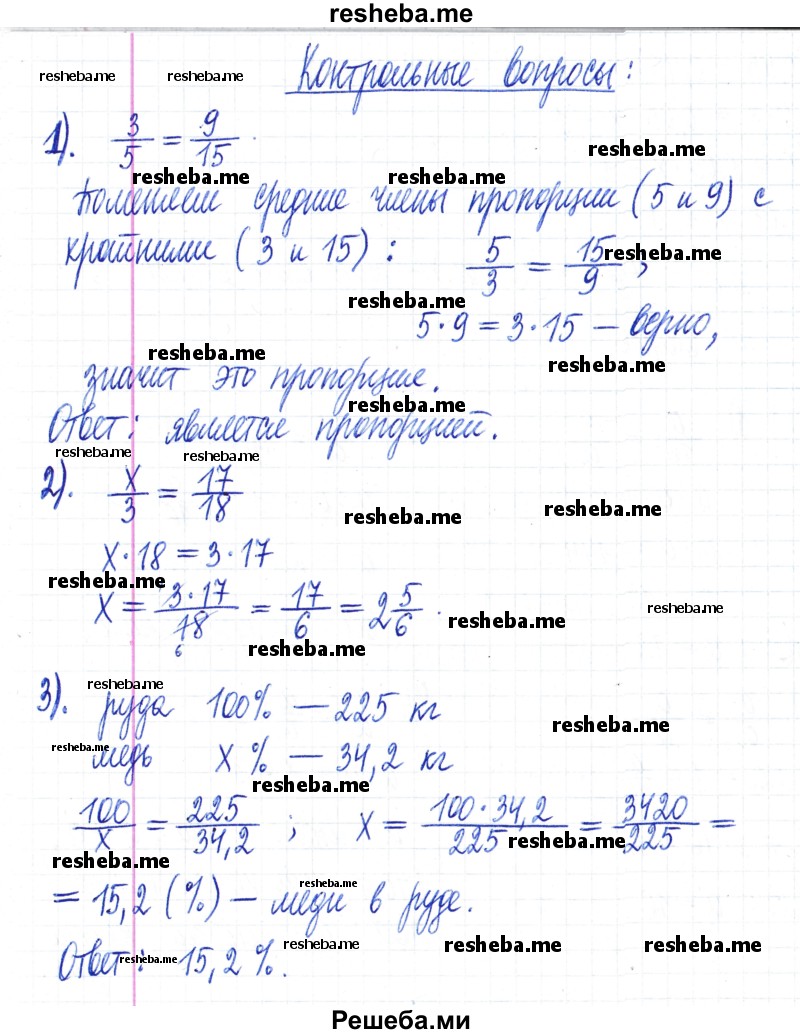 resheba.me
resheba.me resheba.me Контрольные вопросы:
1). 3/5 = 9/15
resheba.me
resheba.me resheba.me
Поменяем средние члены пропорции (5 и 9) с
крайними (3 и 15): 5/3 = 15/9,
resheba.me
resheba.me
5·9 = 3·15 — верно,
resheba.me
resheba.me
значит это пропорция.
resheba.me
Ответ: является пропорцией.
resheba.me resheba.me
2). x/3 = 17/18
resheba.me resheba.me
x·18 = 3·17
resheba.me
x = 3·17/18 = 17/6 = 2 5/6.
6
resheba.me
resheba.me
resheba.me
resheba.me
3). руда 100% — 225 кг
resheba.me
resheba.me
медь x % — 34,2 кг
resheba.me
100/x = 225/34,2 ; x = 100·34,2/225 = 3420/225 =
resheba.me
resheba.me
resheba.me
= 15,2 (%) — меди в руде.
resheba.me resheba.me resheba.me resheba.me
Ответ: 15,2 %.
Решеба.ми